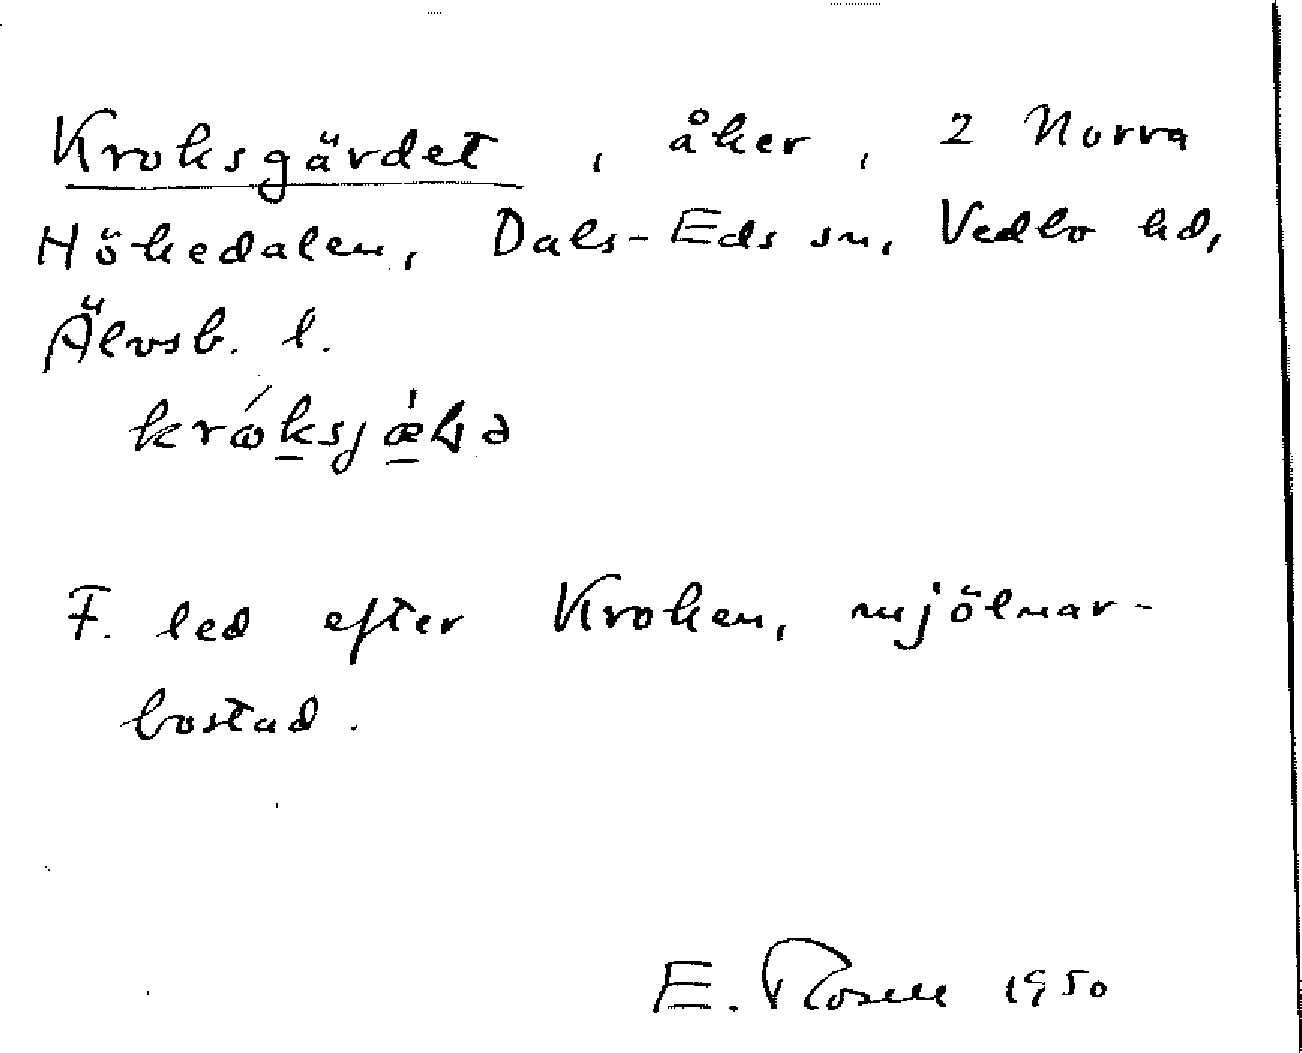 Kroksgärdet, åker, 2 Norra
Hökedalen, Dals-Eds sn, Vedbo hd,
Älvsb. l.
F. led efter Kroken, mjölnar-
bostad.
E. Rosell 1950